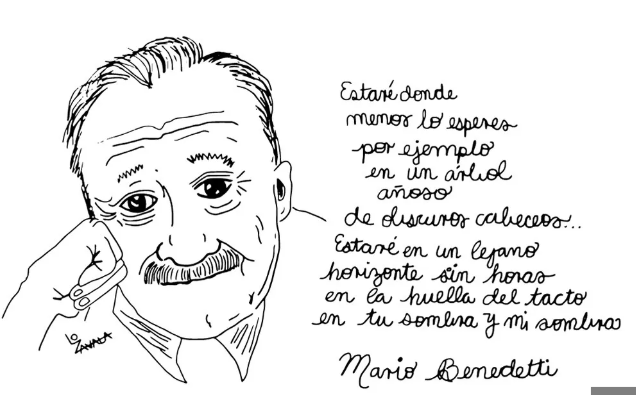 Estaré donde
menos lo esperes
por ejemplo
en un árbol
añoso
de oscuros cabeceos...
Estaré en un lejano
horizonte sin horas
en la huella del tacto
en tu sombra y mi sombra
Mario Benedetti
Lo
ZAVALA